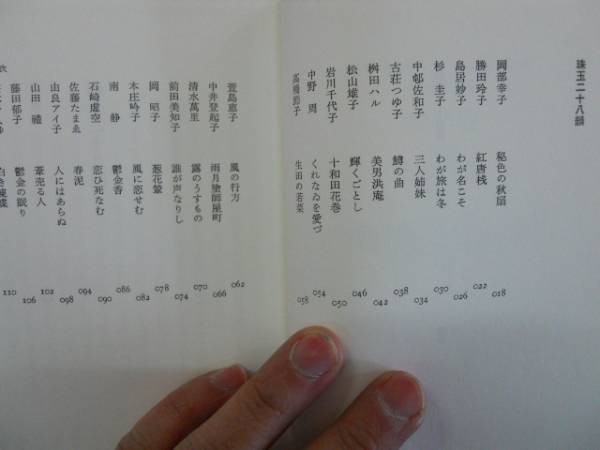 珠玉二十八顆
岡部幸子 秘色の秋扇 018
勝田玲子 紅唐桟 022
島居妙子 わが名こそ 026
杉 圭子 わが旅は冬 030
中邨佐和子 三人姉妹 034
古荘つゆ子 鱒の曲 038
桝田ハル 美男洪庵 042
松山雄子 輝くごとし 046
岩川千代子 十和田花巻 050
中野 周 くれなゐを愛づ 054
生田の若菜 058
萱島惠子 風の行方 062
中井登起子 雨月塗師屋町 066
清水萬里 露のうすもの 070
前田美知子 誰が声なりし 074
岡 昭子 078
本庄吟子 風に恋せむ 082
南 静 鬱金香 086
石崎虚空 恋ひ死なむ 090
佐藤たまゑ 春泥 094
由良アイ子 人にはあらぬ 098
山田 葦売る人 102
藤田郁子 鬱金の眠り 106
110
次